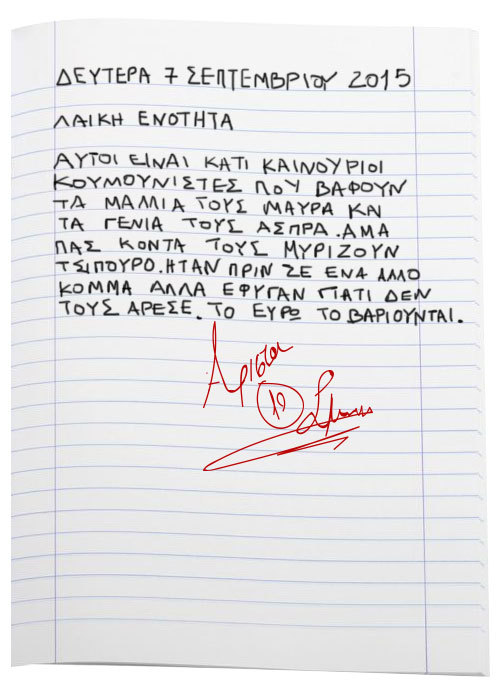 ΔΕΥΤΕΡΑ 7 ΣΕΠΤΕΜΒΡΙΟΥ 2015
ΛΑΙΚΗ ΕΝΟΤΗΤΑ
ΑΥΤΟΙ ΕΙΝΑΙ ΚΑΤΙ ΚΑΙΝΟΥΡΙΟΙ
ΚΟΥΜΟΥΝΙΣΤΕΣ ΠΟΥ ΒΑΦΟΥΝ
ΤΑ ΜΑΛΛΙΑ ΤΟΥΣ ΜΑΥΡΑ ΚΑΙ
ΤΑ ΓΕΝΙΑ ΤΟΥΣ ΑΣΠΡΑ. ΑΜΑ
ΠΑΣ ΚΟΝΤΑ ΤΟΥΣ ΜΥΡΙΖΟΥΝ
ΤΣΙΠΟΥΡΟ. ΗΤΑΝ ΠΡΙΝ ΣΕ ΕΝΑ ΑΛΛΟ
ΚΟΜΜΑ ΑΛΛΑ ΕΦΥΓΑΝ ΓΙΑΤΙ ΔΕΝ
ΤΟΥΣ ΑΡΕΣΕ. ΤΟ ΕΥΡΩ ΤΟ ΒΑΡΙΟΥΝΤΑΙ.
Άριστα